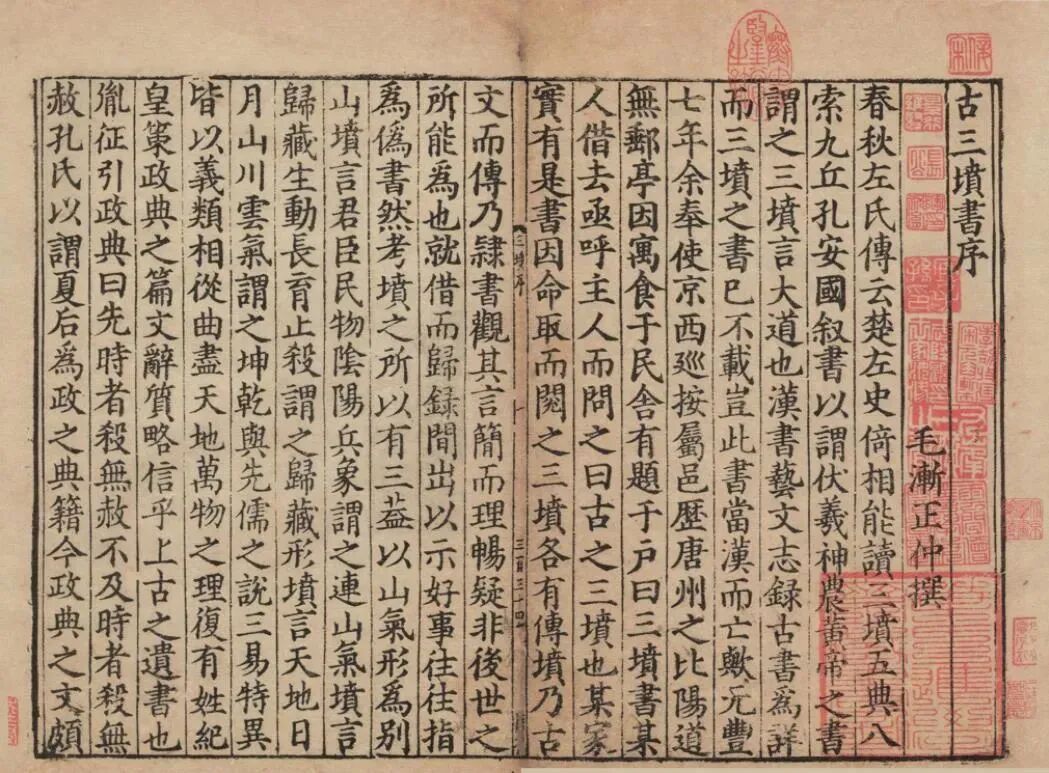 古三墳書序
毛漸正仲撰
春秋左氏傳云楚左史倚相能讀三墳五典八
索九丘孔安國叙書以謂伏羲神農黃帝之書
謂之三墳言大道也漢書藝文志錄古書爲詳
而三墳之書已不載豈此書當漢而亡歟元豐
七年余奉使京西巡按屬邑歷唐州之比陽道
無郵亭因寓食于民舍有題于户曰三墳書某
人借去亟呼主人而問之曰古之三墳也某家
實有是書因命取而閱之三墳各有傳墳乃古
三墳序
文而傳乃隸書觀其言簡而理暢疑非後世之
所能爲也就借而歸録間出以示好事往往指
爲僞書然考墳之所以有三葢以山氣形爲別
山墳言君臣民物陰陽兵象謂之連山氣墳言
歸藏生動長育止殺謂之歸藏形墳言天地日
月山川雲氣謂之坤乾與先儒之說三易特異
皆以義類相從曲盡天地萬物之理復有姓紀
皇策政典之篇文辭質略信乎上古之遺書也
胤征引政典曰先時者殺無赦不及時者殺無
赦孔氏以謂夏后爲政之典籍今政典之文頗